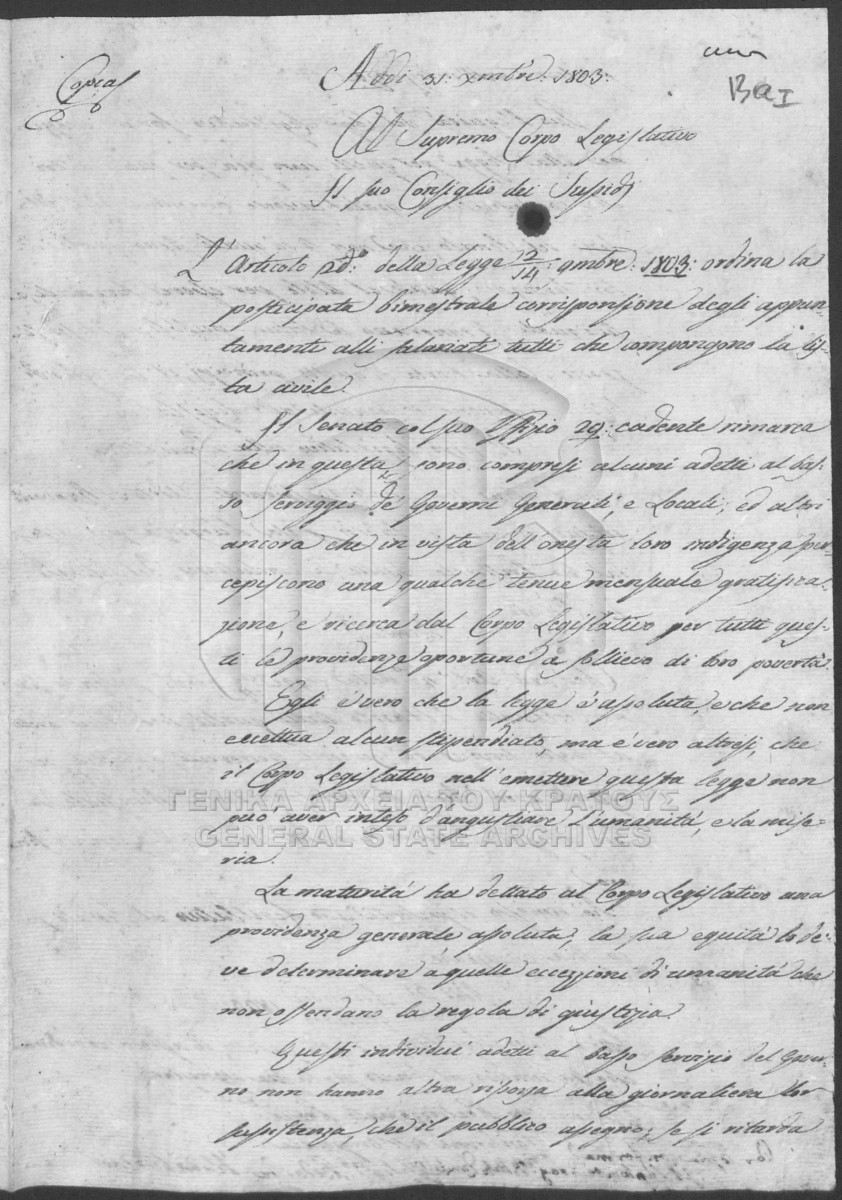 Copia
Addi 31: Xmbre: 1803:
BaI
Al Supremo Corpo Legislativo
Il suo Consiglio dei Sussidj
L'Articolo 2do: della Legge 2/14: 9mbre: 1803: ordina la
posticipata bimestrale corrisponsione degli appun-
tamenti alli salariati tutti che compongono la lis-
ta civile.
Il Senato col suo Offizio 29: cadente rimarca
che in questa sono compresi alcuni adetti al bas-
so serviggio de' Governi Generali, e Locali, ed altri
ancora che in vista dell'onesta loro indigenza per-
cepiscono una qualche tenue mensuale gratifica-
zione, e ricerca dal Corpo Legislativo per tutti ques-
ti le providenze oportune a sollievo di loro povertà.
Egli è vero che la legge è assoluta, e che non
eccettua alcun stipendiato, ma è vero altresì, che
il Corpo Legislativo nell'emettere questa legge non
può aver inteso d'angustiare l'umanità, e la mise-
ria.
La maturità ha dettato al Corpo Legislativo una
providenza generale assoluta, la sua equità lo de-
ve determinare a quelle eccezzioni di umanità che
non offendano la regola di giustizia.
Questi individui adetti al basso servizio del Gover-
no non hanno altra risorsa alla giornaliera lor
sussistenza, che il pubblico assegno; se si ritarda
ΓΕΝΙΚΑ ΑΡΧΕΙΑ ΤΟΥ ΚΡΑΤΟΥΣ
GENERAL STATE ARCHIVES